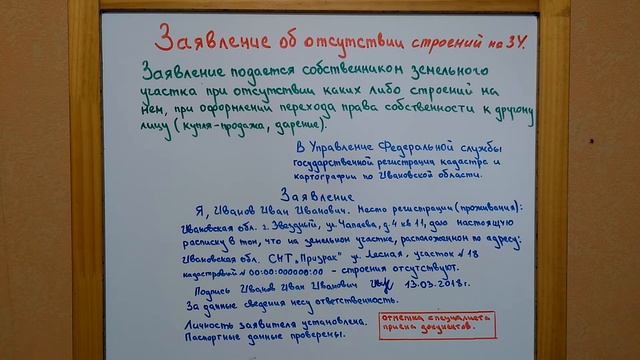 Заявление об отсутствии строений на ЗУ.
Заявление подается собственником земельного
участка при отсутствии каких либо строений на
нем, при оформлении перехода права собственности к другому
лицу (купля-продажа, дарение).
В Управление Федеральной службы
государственной регистрации кадастра и
картографии по Ивановской области.
Заявление
Я, Иванов Иван Иванович. Место регистрации (проживания):
Ивановская обл. г. Звездный, ул. Чапаева, д. 4 кв 11, даю настоящую
расписку в том, что на земельном участке, расположенном по адресу:
Ивановская обл. СНТ „Призрак" ул Лесная, участок №18
кадастровый №00:00:000000:00 - строения отсутствуют.
Подпись Иванов Иван Иванович 13.03.2018г.
За данные сведения несу ответственность.
Личность заявителя установлена.
Паспортные данные проверены.
отметка специалиста
приема документов.